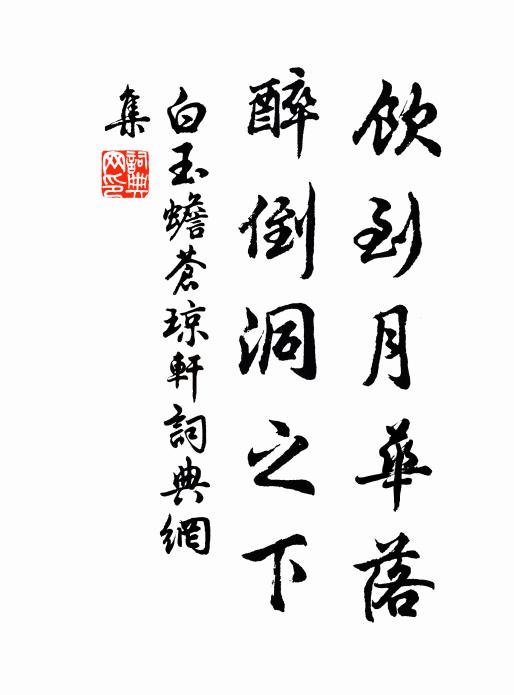 飲到月華落
醉倒洞之下
白玉蟾蒼琼軒詞典網
集
詞典网印